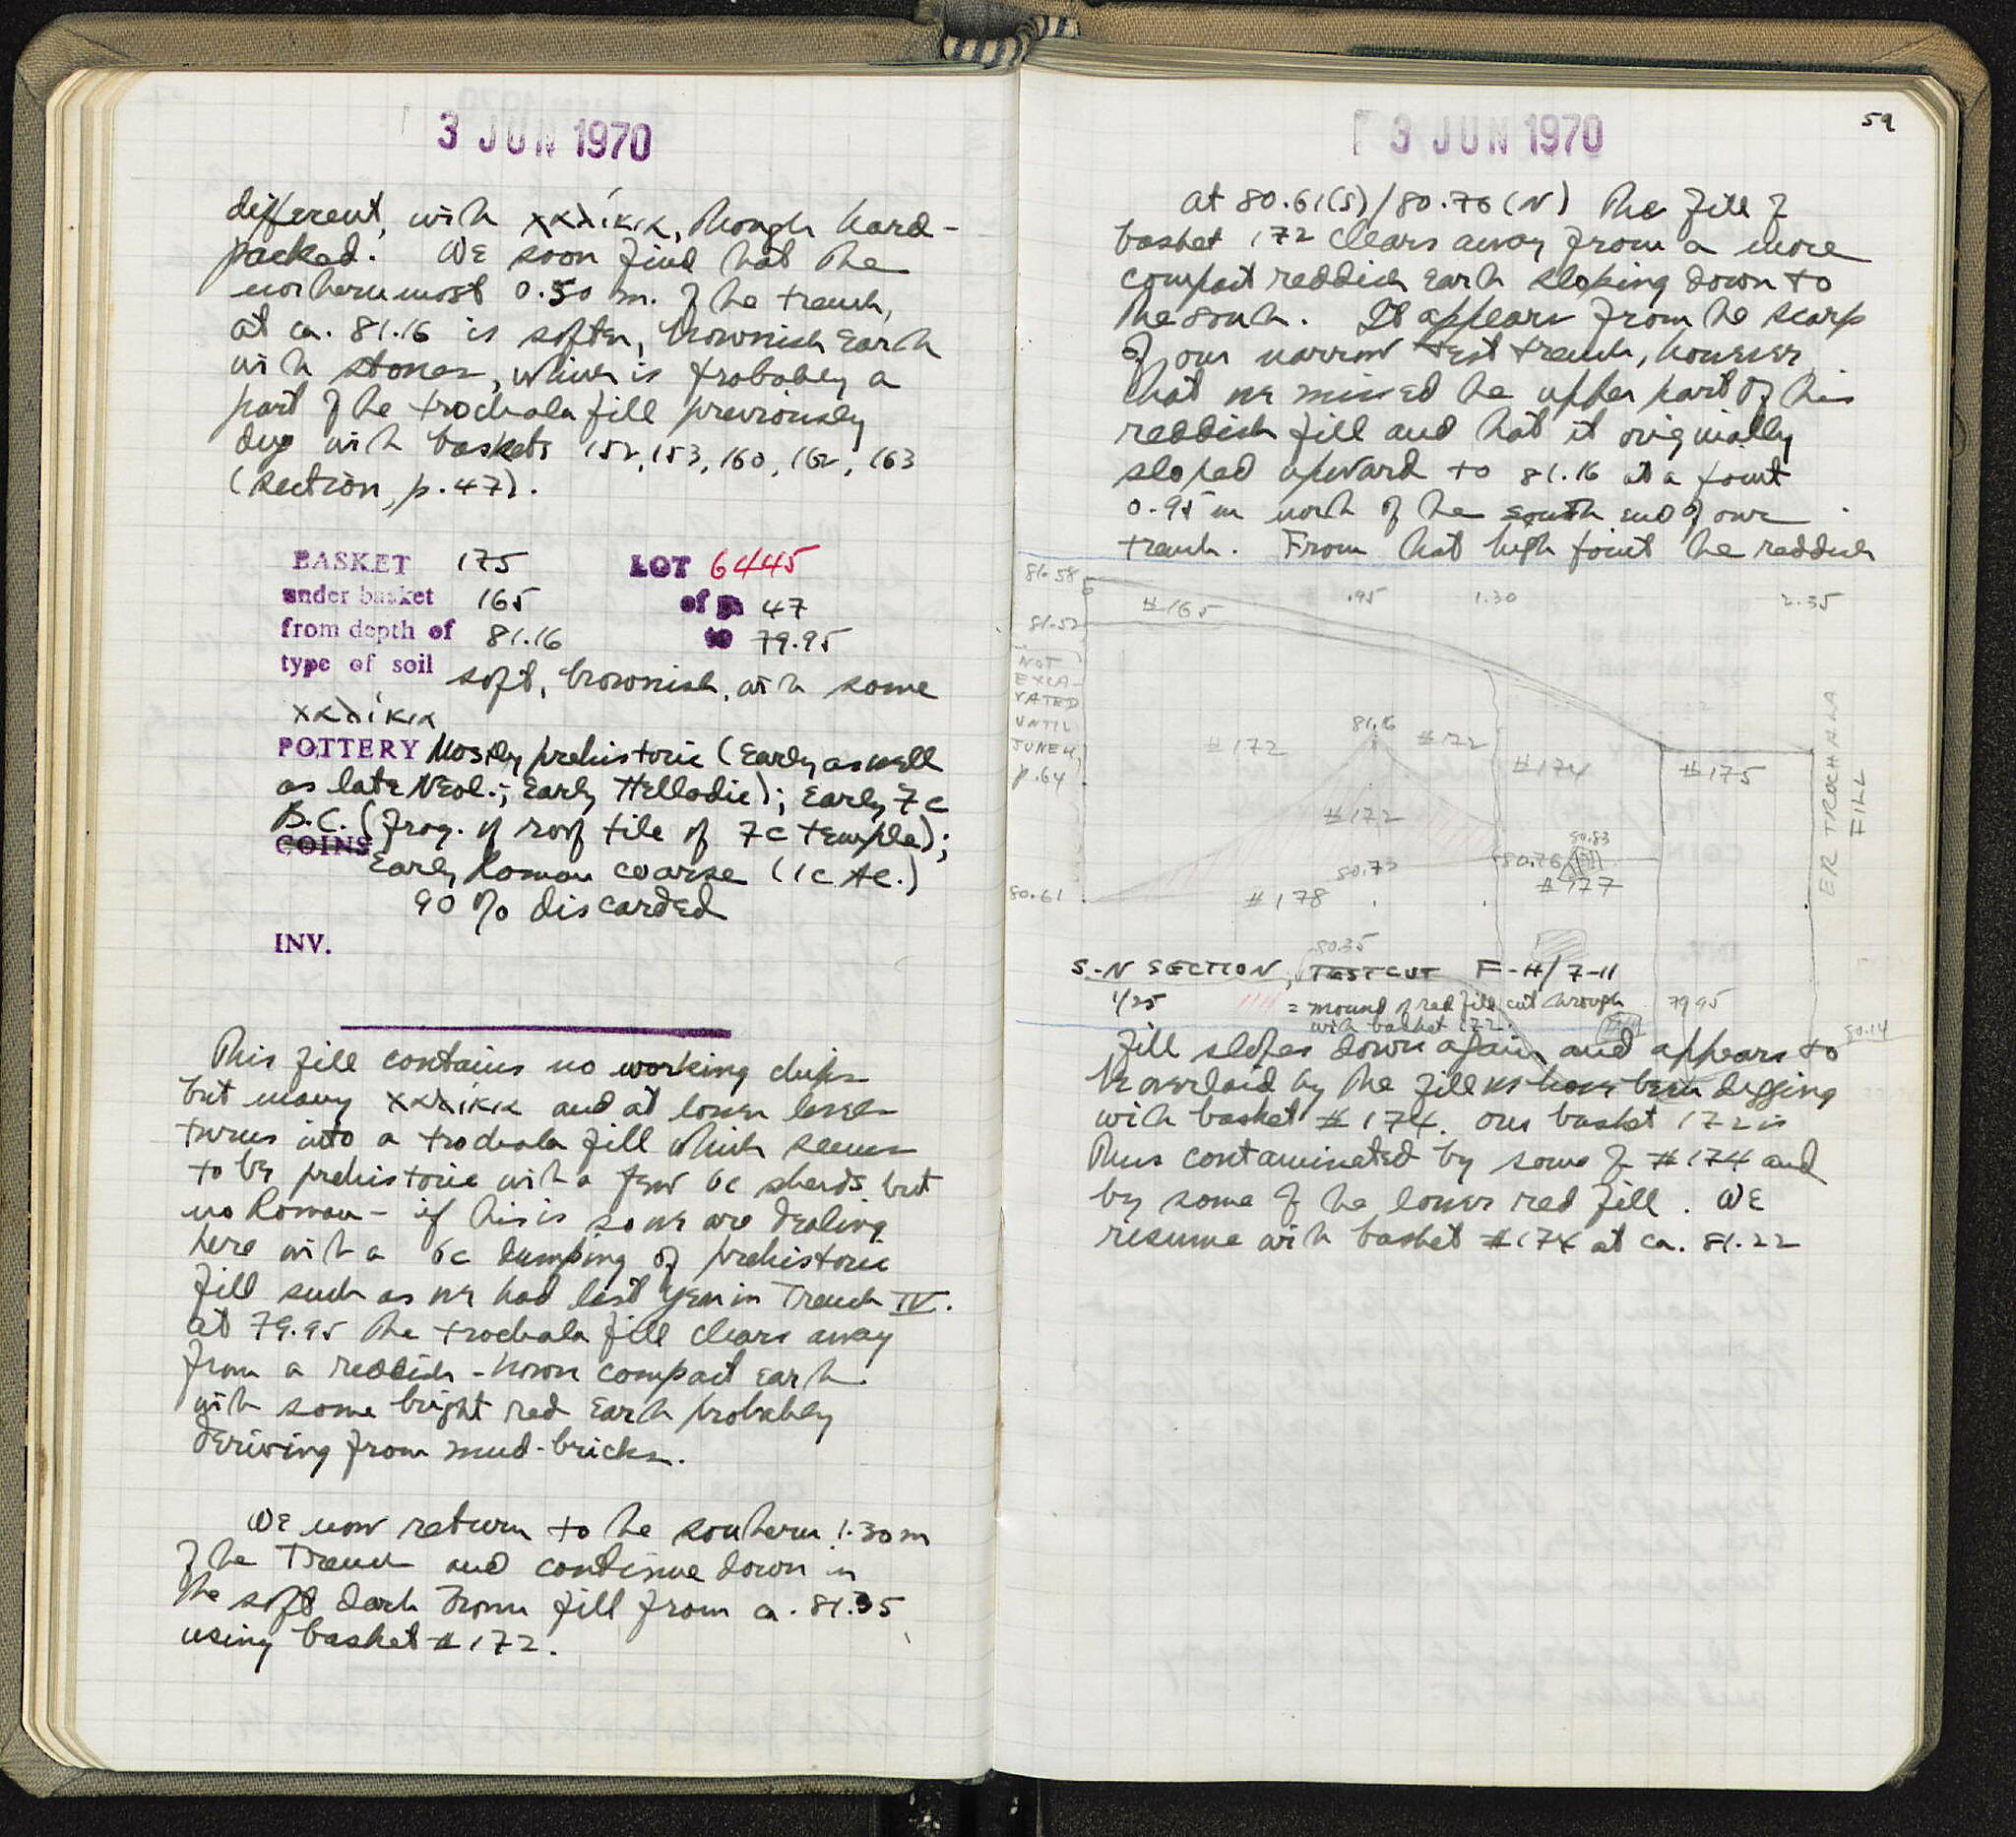 3 JUN 1970
different, with χαλίκια, though hard-
packed. We soon find that the
northernmost 0.50 m. of the trench,
at ca. 81.16 is softer, brownish earth
with stones, which is probably a
part of the trochala fill previously
dug with baskets 152, 153, 160, 162, 163
(section, p. 47).
BASKET 175 LOT 6445
under basket 165 of p 47
from depth of 81.16 to 79.95
type of soil soft, brownish, with some
χαλίκια
POTTERY Mostly prehistoric (Early as well
as late Neol.; Early Helladic); Early 7c
B.C. (frag. of roof tile of 7c temple);
COINS Early Roman coarse (1c AC.)
90% discarded
INV.
This fill contains no working chips
but many χαλίκια and at lower levels
turns into a trochala fill which seems
to be prehistoric with a few 6c sherds but
no Roman - if this is so we are dealing
here with a 6c dumping of prehistoric
fill such as we had last year in Trench IV.
At 79.95 the trochala fill clears away
from a reddish-brown compact earth
with some bright red earth probably
deriving from mud-bricks.
We now return to the southern 1.30 m
of the Trench and continue down in
the soft dark brown fill from ca. 81.35
using basket # 172.
3 JUN 1970
59
At 80.61(S)/80.76(N) the fill of
basket 172 clears away from a more
compact reddish earth sloping down to
the south. It appears from the scarp
of our narrow test trench, however
that we missed the upper part of this
reddish fill and that it originally
sloped upward to 81.16 at a point
0.95 m north of the south end of our
trench. From that high point the reddish
81.58
#165
.95
1.30
2.35
81.52
NOT
EXCA-
VATED
UNTIL
JUNE 4,
p. 64
#172
81.16
#172
#174
#175
ER TROCHALA
FILL
#172
80.83
80.73
80.76
#177
80.61
#178
80.35
S-N SECTION, TESTCUT F-H/7-11
1/25
= mound of red fill cut through
with basket 172.
79.95
80.14
fill slopes down again and appears to
be overlaid by the fill we have been digging
with basket # 174. Our basket 172 is
thus contaminated by some of #174 and
by some of the lower red fill. We
resume with basket #174 at ca. 81.22